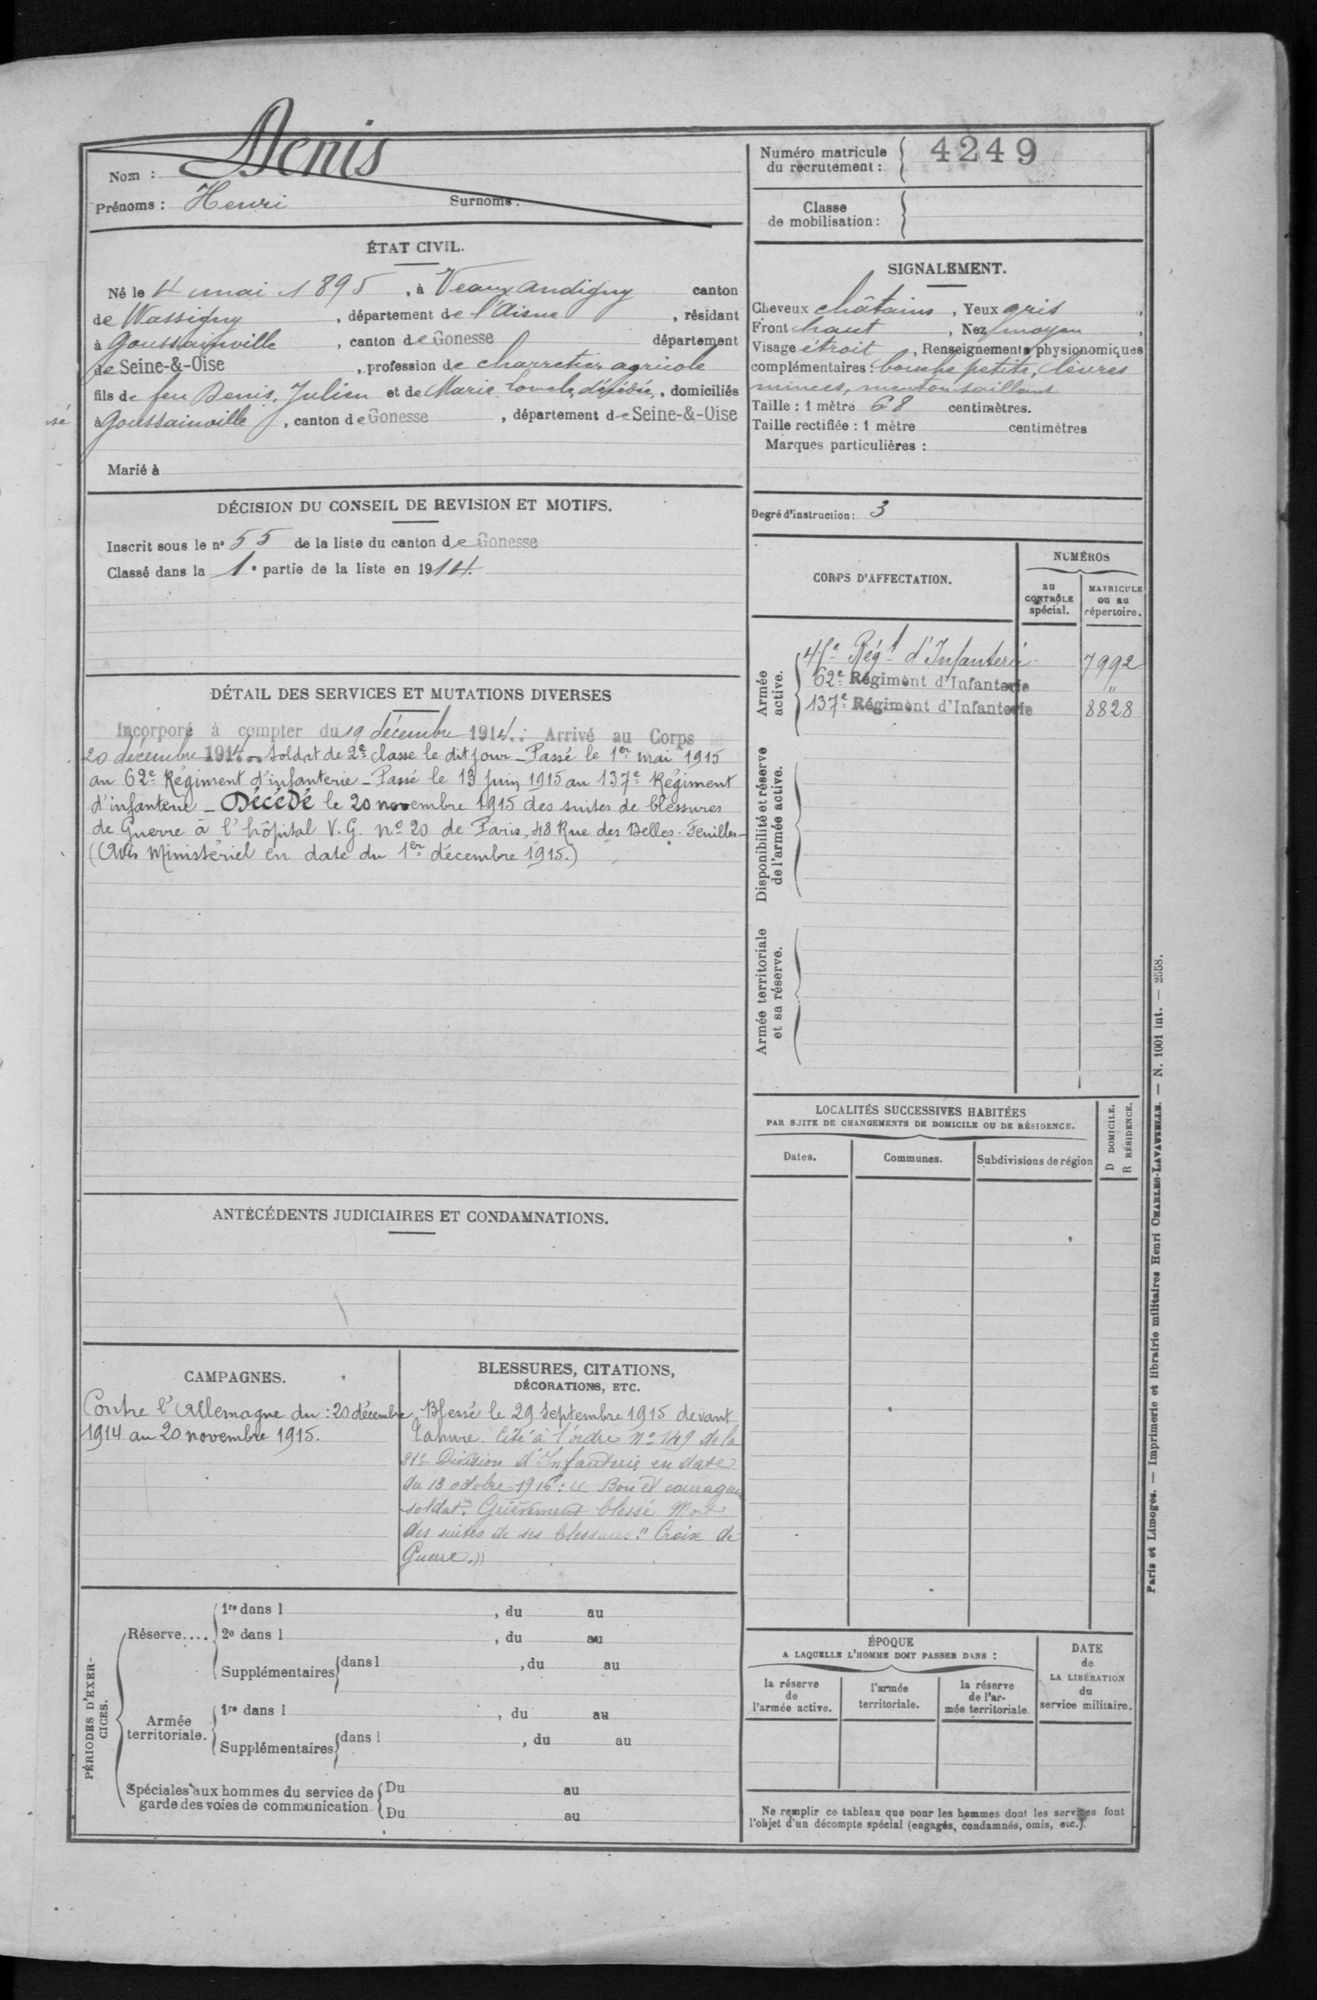 Denis
Nom :
Prénoms : Henri Surnoms :
ÉTAT CIVIL.
Né le 4 mai 1895, à Veaux andigny canton
de Wassigny, département de l'Aisne, résidant
à Goussainville, canton de Gonesse département
de Seine-&-Oise, profession de charretier agricole
fils de feu Denis, Julien et de Marie, domiciliés
à Goussainville, canton de Gonesse, département de Seine-&-Oise
Marié à
DÉCISION DU CONSEIL DE REVISION ET MOTIFS.
Inscrit sous le n° 55 de la liste du canton de Gonesse
Classé dans la 1e partie de la liste en 1914.
DÉTAIL DES SERVICES ET MUTATIONS DIVERSES
Incorporé à compter du 19 décembre 1914. Arrivé au Corps le
20 décembre 1914. Soldat de 2e classe le dit jour _ Passé le 1er mai 1915
au 62e Régiment d'infanterie _ Passé le 13 juin 1915 au 137e Régiment
d'infanterie _ Décédé le 20 novembre 1915 des suites de blessures
de Guerre à l'hôpital V.G. n° 20 de Paris, 48 Rue des Belles-Feuilles_
(Avis Ministériel en date du 1er décembre 1915.)
ANTÉCÉDENTS JUDICIAIRES ET CONDAMNATIONS.
CAMPAGNES.
Contre l'Allemagne du : 20 décembre
1914 au 20 novembre 1915.
BLESSURES, CITATIONS,
DÉCORATIONS, ETC.
Blessé le 29 Septembre 1915 devant
Tahure. Cité à l'ordre N° 149 de la
21e Division d'Infanterie en date
du 13 octobre 1916 : « Bon et courageux
soldat. Grièvement blessé. Mort
des suites de ses blessures." Croix de
Guerre.»
PÉRIODES D'EXERCICES.
Réserve....
1re dans l , du au
2e dans l , du au
Supplémentaires dans l , du au
Armée territoriale.
1re dans l , du au
Supplémentaires dans l , du au
Spéciales aux hommes du service de
garde des voies de communication.
Du au
Du au
Numéro matricule
du recrutement : 4249
Classe
de mobilisation :
SIGNALEMENT.
Cheveux châtains, Yeux gris,
Front haut, Nez moyen,
Visage étroit, Renseignements physionomiques
complémentaires : bouche petite, lèvres
minces, menton saillant
Taille : 1 mètre 68 centimètres.
Taille rectifiée : 1 mètre centimètres
Marques particulières :
Degré d'instruction : 3
CORPS D'AFFECTATION.
NUMÉROS
au
CONTRÔLE
spécial.
MATRICULE
ou au
répertoire.
Armée
active.
Régt d'Infanterie 7992
62e Régiment d'Infanterie "
137e Régiment d'Infanterie 8828
Disponibilité et réserve
de l'armée active.
Armée territoriale
et sa réserve.
LOCALITÉS SUCCESSIVES HABITÉES
PAR SUITE DE CHANGEMENTS DE DOMICILE OU DE RÉSIDENCE.
Dates.
Communes.
Subdivisions de région
D DOMICILE.
R RÉSIDENCE.
ÉPOQUE
A LAQUELLE L'HOMME DOIT PASSER DANS :
la réserve
de
l'armée active.
l'armée
territoriale.
la réserve
de l'ar-
mée territoriale.
DATE
de
LA LIBÉRATION
du
service militaire.
Ne remplir ce tableau que pour les hommes dont les services font
l'objet d'un décompte spécial (engagés, condamnés, omis, etc.).
Paris et Limoges. — Imprimerie et librairie militaires Henri CHARLES-LAVAUZELLE. — N. 1001 int. — 2558.